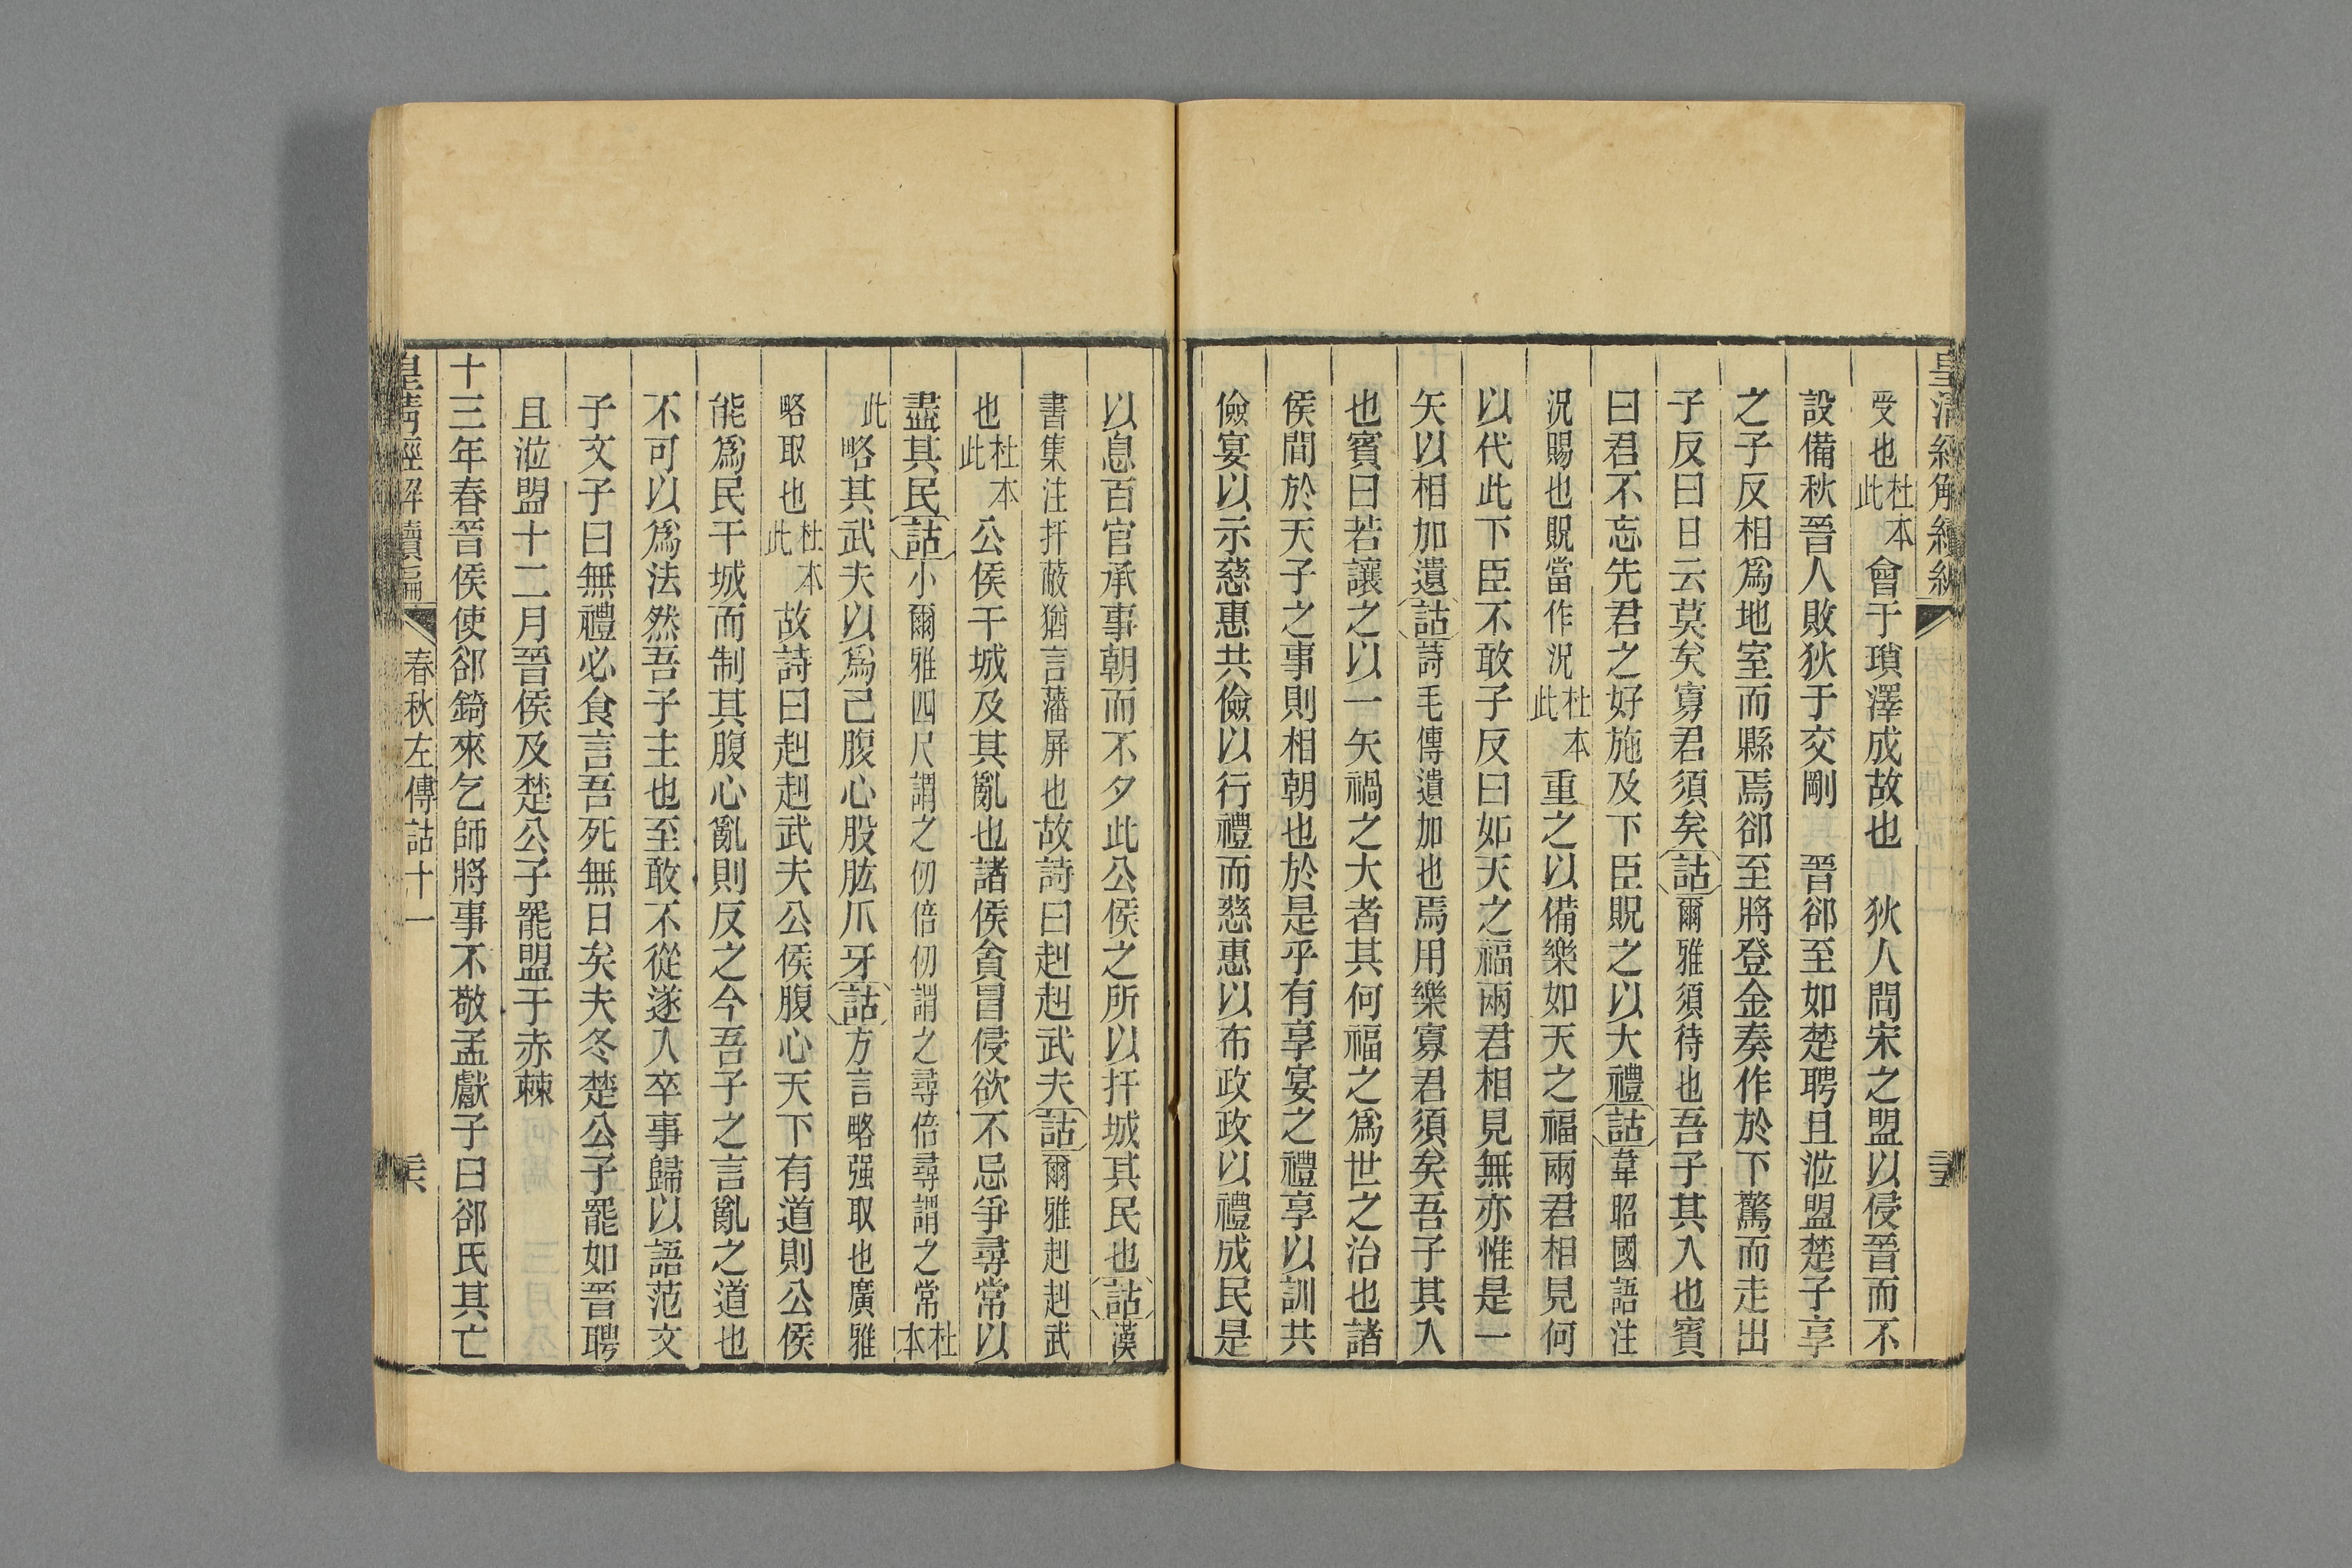 皇清經解續編
受也杜本此會于瑣澤成故也　狄人間宋之盟以侵晉而不
設備秋晉人敗狄于交剛　晉郤至如楚聘且涖盟楚子享
之子反相爲地室而縣焉郤至將登金奏作於下驚而走出
子反曰日云莫矣寡君須矣詁爾雅須待也吾子其入也賓
曰君不忘先君之好施及下臣貺之以大禮詁韋昭國語注
況賜也貺當作況杜本此重之以備樂如天之福兩君相見何
以代此下臣不敢子反曰如天之福兩君相見無亦惟是一
矢以相加遺詁詩毛傳遺加也焉用樂寡君須矣吾子其入
也賓曰若讓之以一矢禍之大者其何福之爲世之治也諸
侯間於天子之事則相朝也於是乎有享宴之禮享以訓共
儉宴以示慈惠共儉以行禮而慈惠以布政政以禮成民是
以息百官承事朝而不夕此公侯之所以扞城其民也詁漢
書集注扞蔽猶言藩屏也故詩曰赳赳武夫詁爾雅赳赳武
也杜本此公侯干城及其亂也諸侯貪冒侵欲不忌爭尋常以
盡其民詁小爾雅四尺謂之仞倍仞謂之尋倍尋謂之常杜本
此略其武夫以爲己腹心股肱爪牙詁方言略强取也廣雅
略取也杜本此故詩曰赳赳武夫公侯腹心天下有道則公侯
能爲民干城而制其腹心亂則反之今吾子之言亂之道也
不可以爲法然吾子主也至敢不從遂入卒事歸以語范文
子文子曰無禮必食言吾死無日矣夫冬楚公子罷如晉聘
且涖盟十二月晉侯及楚公子罷盟于赤棘
十三年春晉侯使郤錡來乞師將事不敬孟獻子曰郤氏其亡
皇清經解續編　春秋左傳詁十一